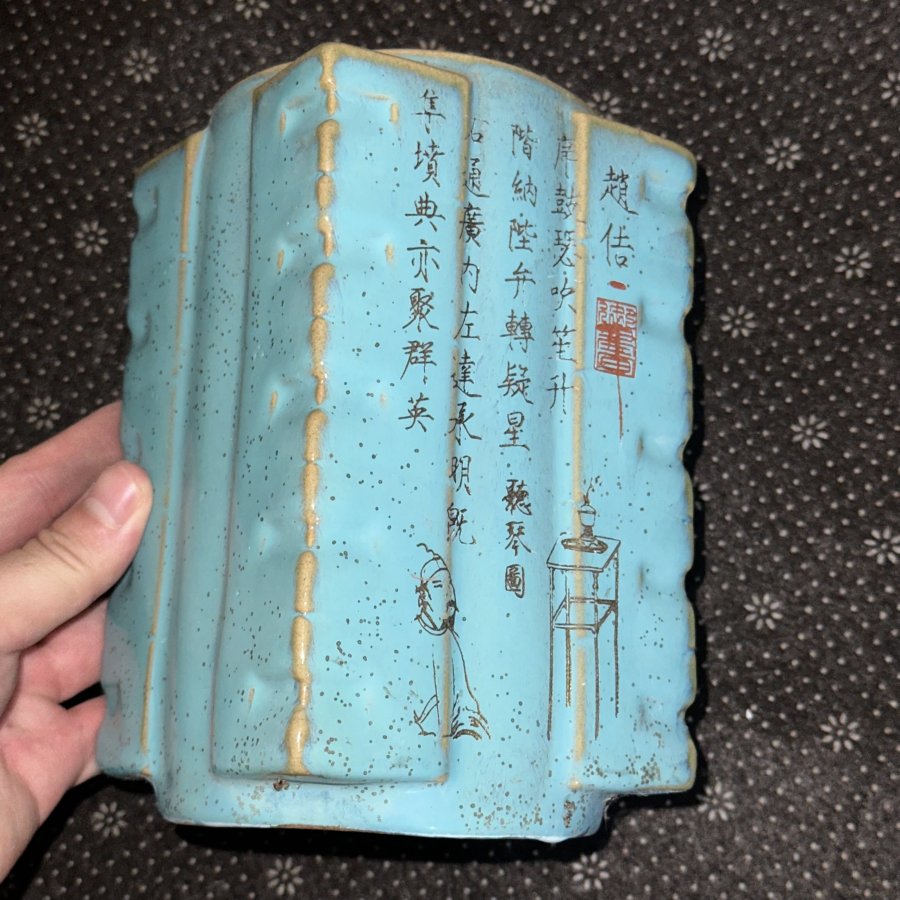 趙佶
御書
席鼓瑟吹笙升
階納陛弁轉疑星
聽琴圖
右通廣內左達承明既
集墳典亦聚群英